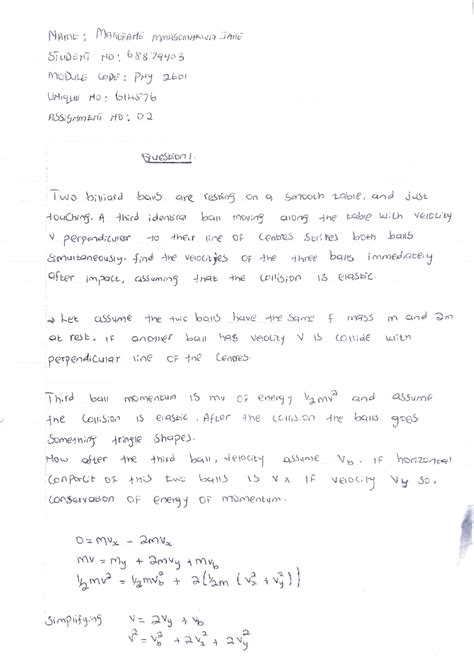 NAME : MAKOFANE MMASCHAKWA JANE
STUDENT NO : 68879403
MODULE CODE : PHY 2601
UNIQUE NO : 614576
ASSIGNMENT NO : 02
Question 1.
Two billiard balls are resting on a smooth table, and just
touching. A third identical ball moving along the table with velocity
V perpendicular to their line of centres strikes both balls
simultaneously. find the velocities of the three balls immediately
after impact, assuming that the collision is elastic.
→ Let assume the two balls have the same f mass m and 2m
at rest. If another ball has velocity V is collide with
perpendicular line of the centres.
Third ball momentum is mv of energy 1/2mv² and assume
the collision is elastic. After the collision the balls goes
something tringle shapes.
Now after the third ball, velocity assume Vb. If horizontal
of this two balls is Vx if velocity Vy so,
conservation of energy of momentum.
0 = mvx - 2mvx
mv = my + 2mvy + mvb
1/2mv² = 1/2mvb² + 2(1/2m (vx² + vy²))
Simplifying V = 2Vy + Vb
V² = Vb² + 2Vx² + 2Vy²